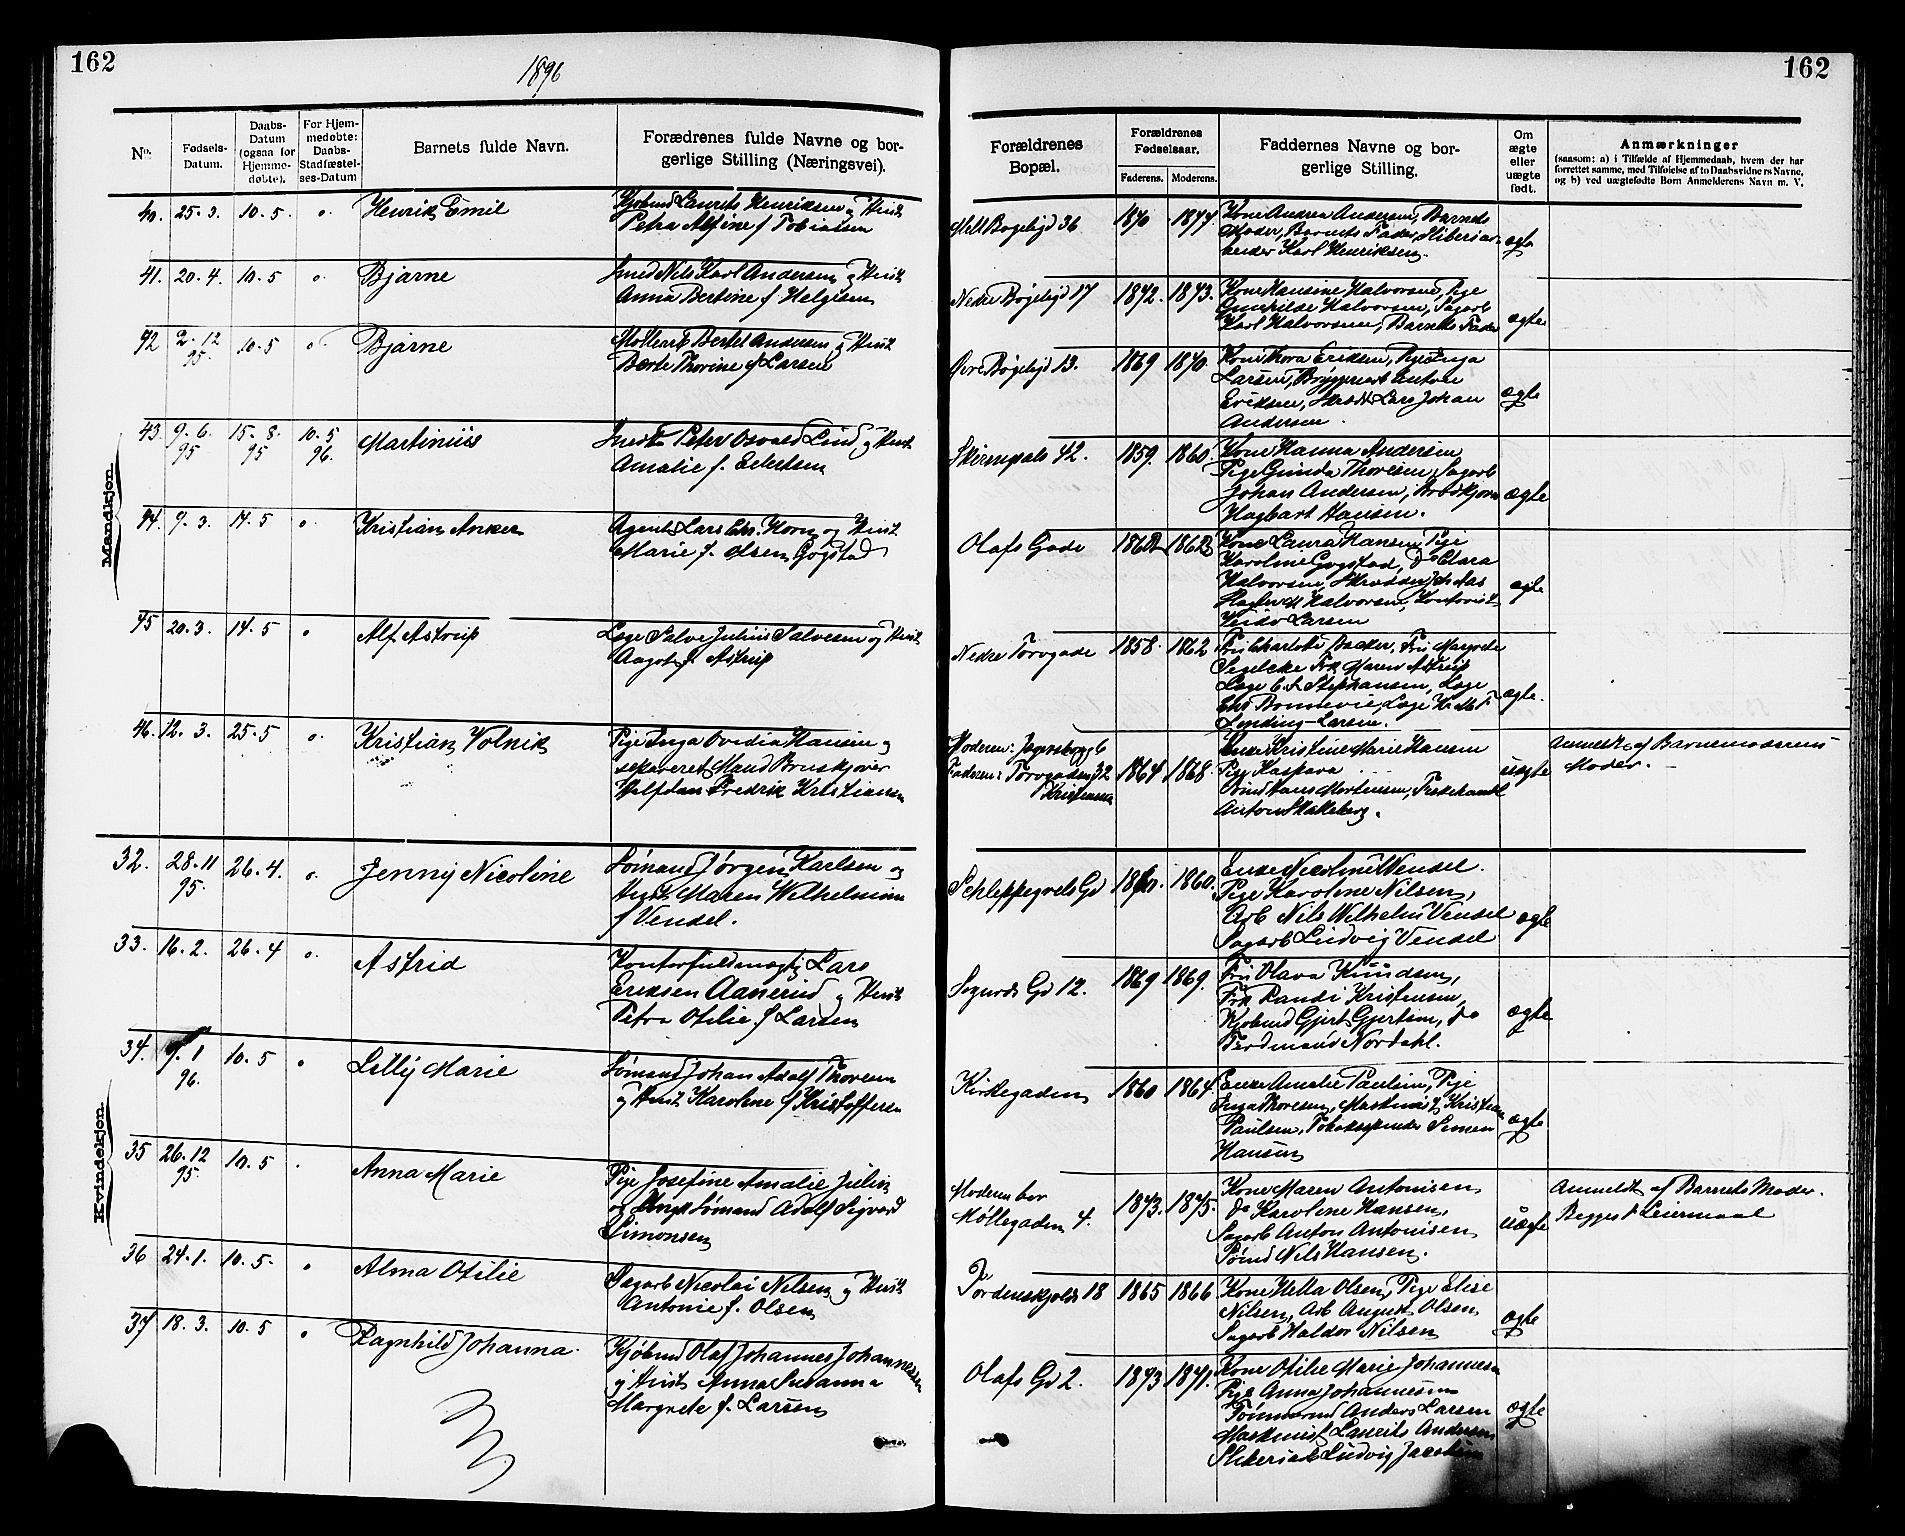 162
1896
162
No.
Fødsels-
Datum.
Daabs-
Datum
(ogsaa for
Hjemme-
døbte).
For Hjem-
medøbte:
Daabs-
Stadfæstel-
ses-Datum
Barnets fulde Navn.
Forædrenes fulde Navne og bor-
gerlige Stilling (Næringsvei).
Forældrenes
Bopæl.
Forældrenes
Fødselsaar.
Faderens.
Moderens.
Faddernes Navne og bor-
gerlige Stilling.
Om
ægte
eller
uægte
født.
Anmærkninger
(saasom: a) i Tilfælde af Hjemmedaab, hvem der har
forrettet samme, med Tilføielse af to Daabsvidners Navne,
og b) ved uægtefødte Børn Anmelderens Navn m. V.
Mandkjøn.
40. 25.3. 10.5 Henrik Emil
Laurits Henriksen og Hust
Petra Alfine f. Tobiassen
Bøgelyd 36 1870 1874.
Kone Andrea Andersen, Barnets
Moder, Barnets Fader,
Karl Henriksen.
ægte
41. 20.4. 10.5 Bjarne
Smed Nils Karl Andersen og Hust
Anna Bertine f. Helgesen
Nedre Bøgelyd 17 1872. 1873.
Kone Hansine Halvorsen, Pige
Gunhilde Halvorsen, Sagarb
Karl Halvorsen, Barnets Fader
ægte
42 2.12 10.5 Bjarne
95.
Møllerarb Bertel Andersen og Hust
Berte Thorine f Larsen
Øvre Bøgelyd 13. 1869 1870.
Kone Thora Eriksen, Pige Inga
Larsen, Bryggeriarb Anton
Eriksen, Lars Johan
Andersen.
ægte
43. 9.6. 15.8. 10.5 Martinius
95 95 96.
Peter Osvald Lund og Hust
Amalie f. Edertsen
42. 1859. 1860.
Kone Hanna Andersen
Pige Gunda Thoresen, Sagarb
Johan Andersen, Brødkjører
Hagbart Hansen.
ægte
44. 9.3. 14.5 Kristian Anker
Agent Lars Chr. Horn og Hust
Marie f. Olsen Gogstad
Olafs Gade 1862 1862
Kone Laura Hansen, Pige
Karoline Gogstad, do Clara
Halvorsen, Skrædder
Halvorsen, Kontorist
Larsen
ægte
45 20.3. 14.5 Alf Astrup
Læge Salve Julius Salvesen og Hust
Aagot f. Astrup
Nedre Torvgade 1858. 1862
Fru Charlotte Backer, Fru Margrete
Segelcke Frk Maren Astrup
Læge C. S. Stephansen, Læge
Chr Bonnevie, Læge
Lynding-Larsen.
ægte.
46. 12.3. 25.5 Kristian Volnik
Pige Inga Ovedia Hansen og
separeret Mand Bruskjører
Halfdan Fredrik Kristiansen
Moderen: Jegersborgg 6
Faderen: Torvgaden 32
Kristiansen
1864 1868.
Enke Kristine Marie Hansen
Pige Kaspara
Hans Mortensen, Fiskehandl
Anton Skalleberg.
uægte
Anmeldt af Barnemoderens
Moder.
Kvindekjøn.
32. 28.11 26.4. Jenny Nicoline
95.
Sømand Jørgen Karlsen og
Hust Maren Wilhelmine
f Vendel.
Schleppegrels Gd 1860.
Enke Nicoline Vendel.
Pige Karoline Nilsen,
Arb Nils Wilhelm Vendel
Sagarb Ludvig Vendel
ægte
33. 16.2. 26.4 Astrid
Kontorfuldmægtig Lars
Eriksen Aanerud og Hust
Petra Otilie f Larsen
Sigurds Gd 12. 1869 1869.
Fru Olava Knudsen,
Frk Randi Kristensen,
Kjøbmd Gjert Gjertsen, do
Ferdinand Nordahl.
ægte
34. 9.1 10.5 Lilly Marie
96.
Sømand Johan Adolf Thoresen
og Hust Karoline f Kristoffersen
Kirkegaden 1860 1864.
Enke Amalie Paulsen, Pige
Inga Thoresen, Maskinist Kristian
Paulsen, Tobakspinder Simen
Hansen
ægte
35 26.12 10.5 Anna Marie
95.
Pige Josefine Amalie Julin
og Ungk Sømand Adolf Sigvard
Simonsen
Moderen bor
Møllegaden 4. 1873. 1875.
Kone Maren Antonisen
do Karoline Hansen,
Sagarb Anton Antonisen
Sømd Nils Hansen.
uægte
Anmeldt af Barnets Moder.
Begges Leiermaal
36 24.1. 10.5. Alma Otilie
Sagarb Nicolai Nilsen og Hust
Antonie f. Olsen
Tordenskjolds 18 1865 1866
Kone Hella Olsen, Pige Elise
Nilsen, Arb August Olsen,
Sagarb Haldor Nilsen
ægte
37 18.3. 10.5 Ragnhild Johanna.
Kjøbmd Olaf Johannes Johannessen
og Hust Anna Susanna
Margrete f. Larsen
Olafs Gd 2. 1873 1871.
Kone Otilie Marie Johannesen
Pige Anna Johannesen
Tømmermd Anders Larsen
Maskinist Laurits Andersen
Ludvig Jacobsen
ægte